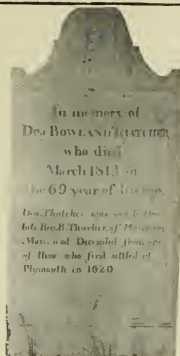 In memory of
Dea ROWLAND THATCHER
who died
March 1813 in
the 69 year of his age.
Dea. Thatcher was son to the
late Rev. B. Thacher of
Mass. and Decended from one
of those who first settled at
Plymouth in 1620